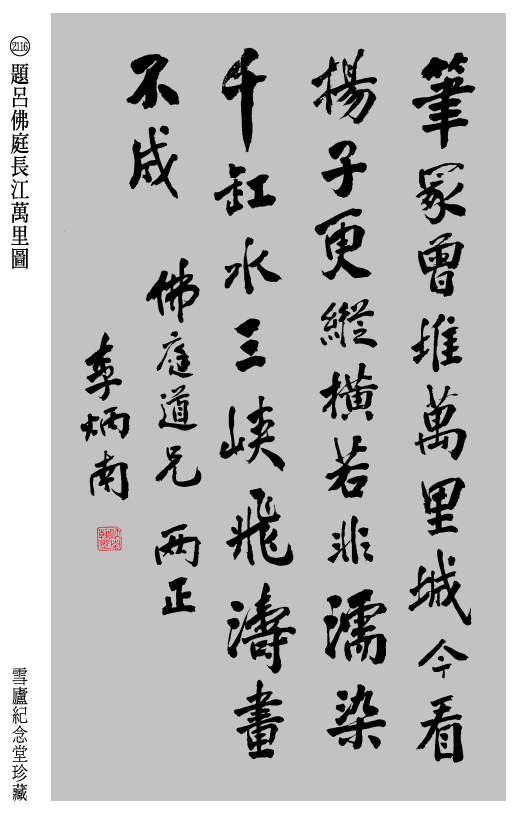 筆冢曾堆萬里城今看
揚子更縱橫若非濡染
千缸水三峽飛濤畫
不成
佛庭道兄 兩正
李炳南
2116 題呂佛庭長江萬里圖
雪廬紀念堂珍藏